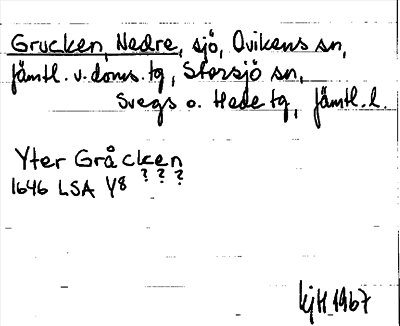 Grucken, Nedre, sjö, Ovikens sn,
Jämtl. v. doms. tg, Storsjö sn,
Svegs o. Hede tg, Jämtl. l.
Yter Gråcken
? ? ?
1646 LSA Y8
kjH 1967